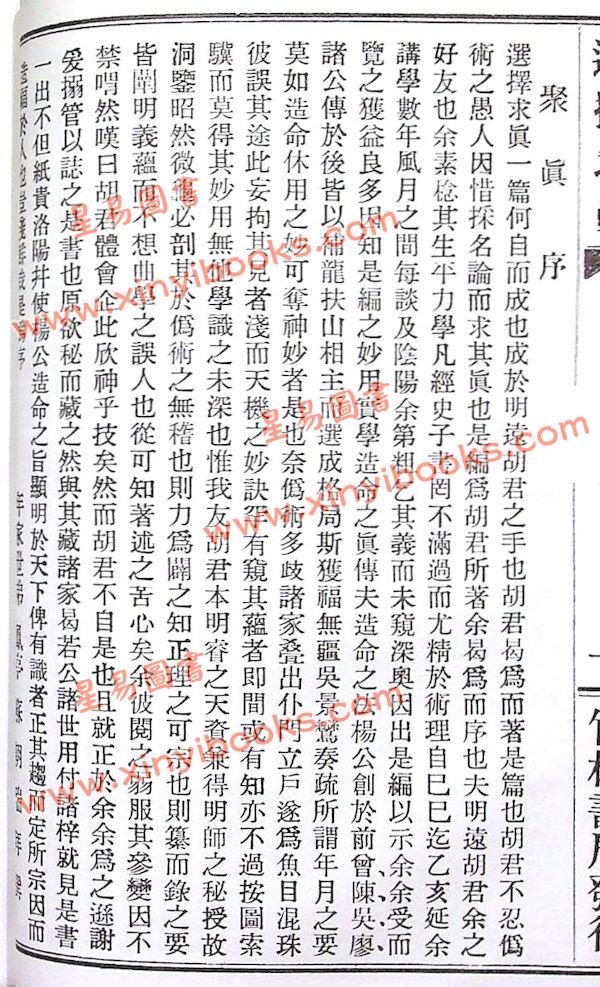 聚眞序
選擇求眞一篇何自而成也成於明遠胡君之手也胡君曷爲而著是篇也胡君不忍僞
術之愚人因惜採名論而求其眞也是編爲胡君所著余曷爲而序也夫明遠胡君余之
好友也余素稔其生平力學凡經史子書罔不滿過而尤精於術理自巳巳迄乙亥延余
講學數年風月之間每談及陰陽余第粗乙其義而未窺深奧因出是編以示余余受而
覽之獲益良多因知是編之妙用實學造命之眞傳夫造命之法楊公創於前曾陳吳廖
諸公傳於後皆以補龍扶山相主而選成格局斯獲福無疆吳景鸞奏疏所謂年月之要
莫如造命休用之妙可奪神妙者是也奈僞術多歧諸家叠出仆門立戶遂爲魚目混珠
彼誤其途此妄拘其見者淺而天機之妙訣罕有窺其蘊者即間或有知亦不過按圖索
驥而莫得其妙用無他學識之未深也惟我友胡君本明睿之天資兼得明師之秘授故
洞鑒昭然微必剖其於僞術之無稽也則力爲闢之知正理之可宗也則纂而錄之要
皆闡明義蘊而不想曲學之誤人也從可知著述之苦心矣余彼閱之翏服其參變因不
禁喟然嘆曰胡君體會企此欣神乎技矣然而胡君不自是也且就正於余余爲之遜謝
爰搦管以誌之是書也原欲秘而藏之然與其藏諸家曷若公諸世用付諸梓就見是書
一出不但紙貴洛陽幷使楊公造命之旨顯明於天下俾有識者正其趨而定所宗因而
造福於人也豈淺
星易圖書
www.xinyibooks.com
星易圖書
www.xinyibooks.com
星易圖書
www.xinyibooks.com